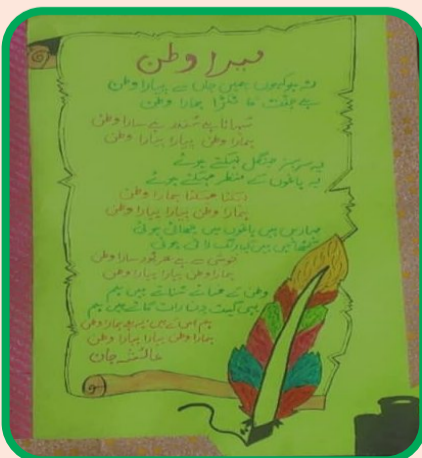 میرا وطن
نہ ہو کیوں ہمیں جاں سے پیارا وطن
ہے جنت کا ٹکڑا ہمارا وطن
سہانا ہے سندر ہے سارا وطن
ہمارا وطن پیارا پیارا وطن
یہ سرسبز جنگل لہکتے ہوئے
یہ باغوں کے منظر مہکتے ہوئے
مہکتا ہمارا وطن
ہمارا وطن پیارا پیارا وطن
بہاریں ہیں باغوں میں چھائی ہوئی
گھٹائیں ہیں کیا رنگ لائی ہوئی
خوشی سے ہے بھرپور سارا وطن
ہمارا وطن پیارا پیارا وطن
وطن کے ہیں ہم
یہی گیت دن رات گاتے ہیں ہم
ہم اس کے ہیں یہ ہے ہمارا وطن
ہمارا وطن پیارا پیارا وطن
عائشہ جان